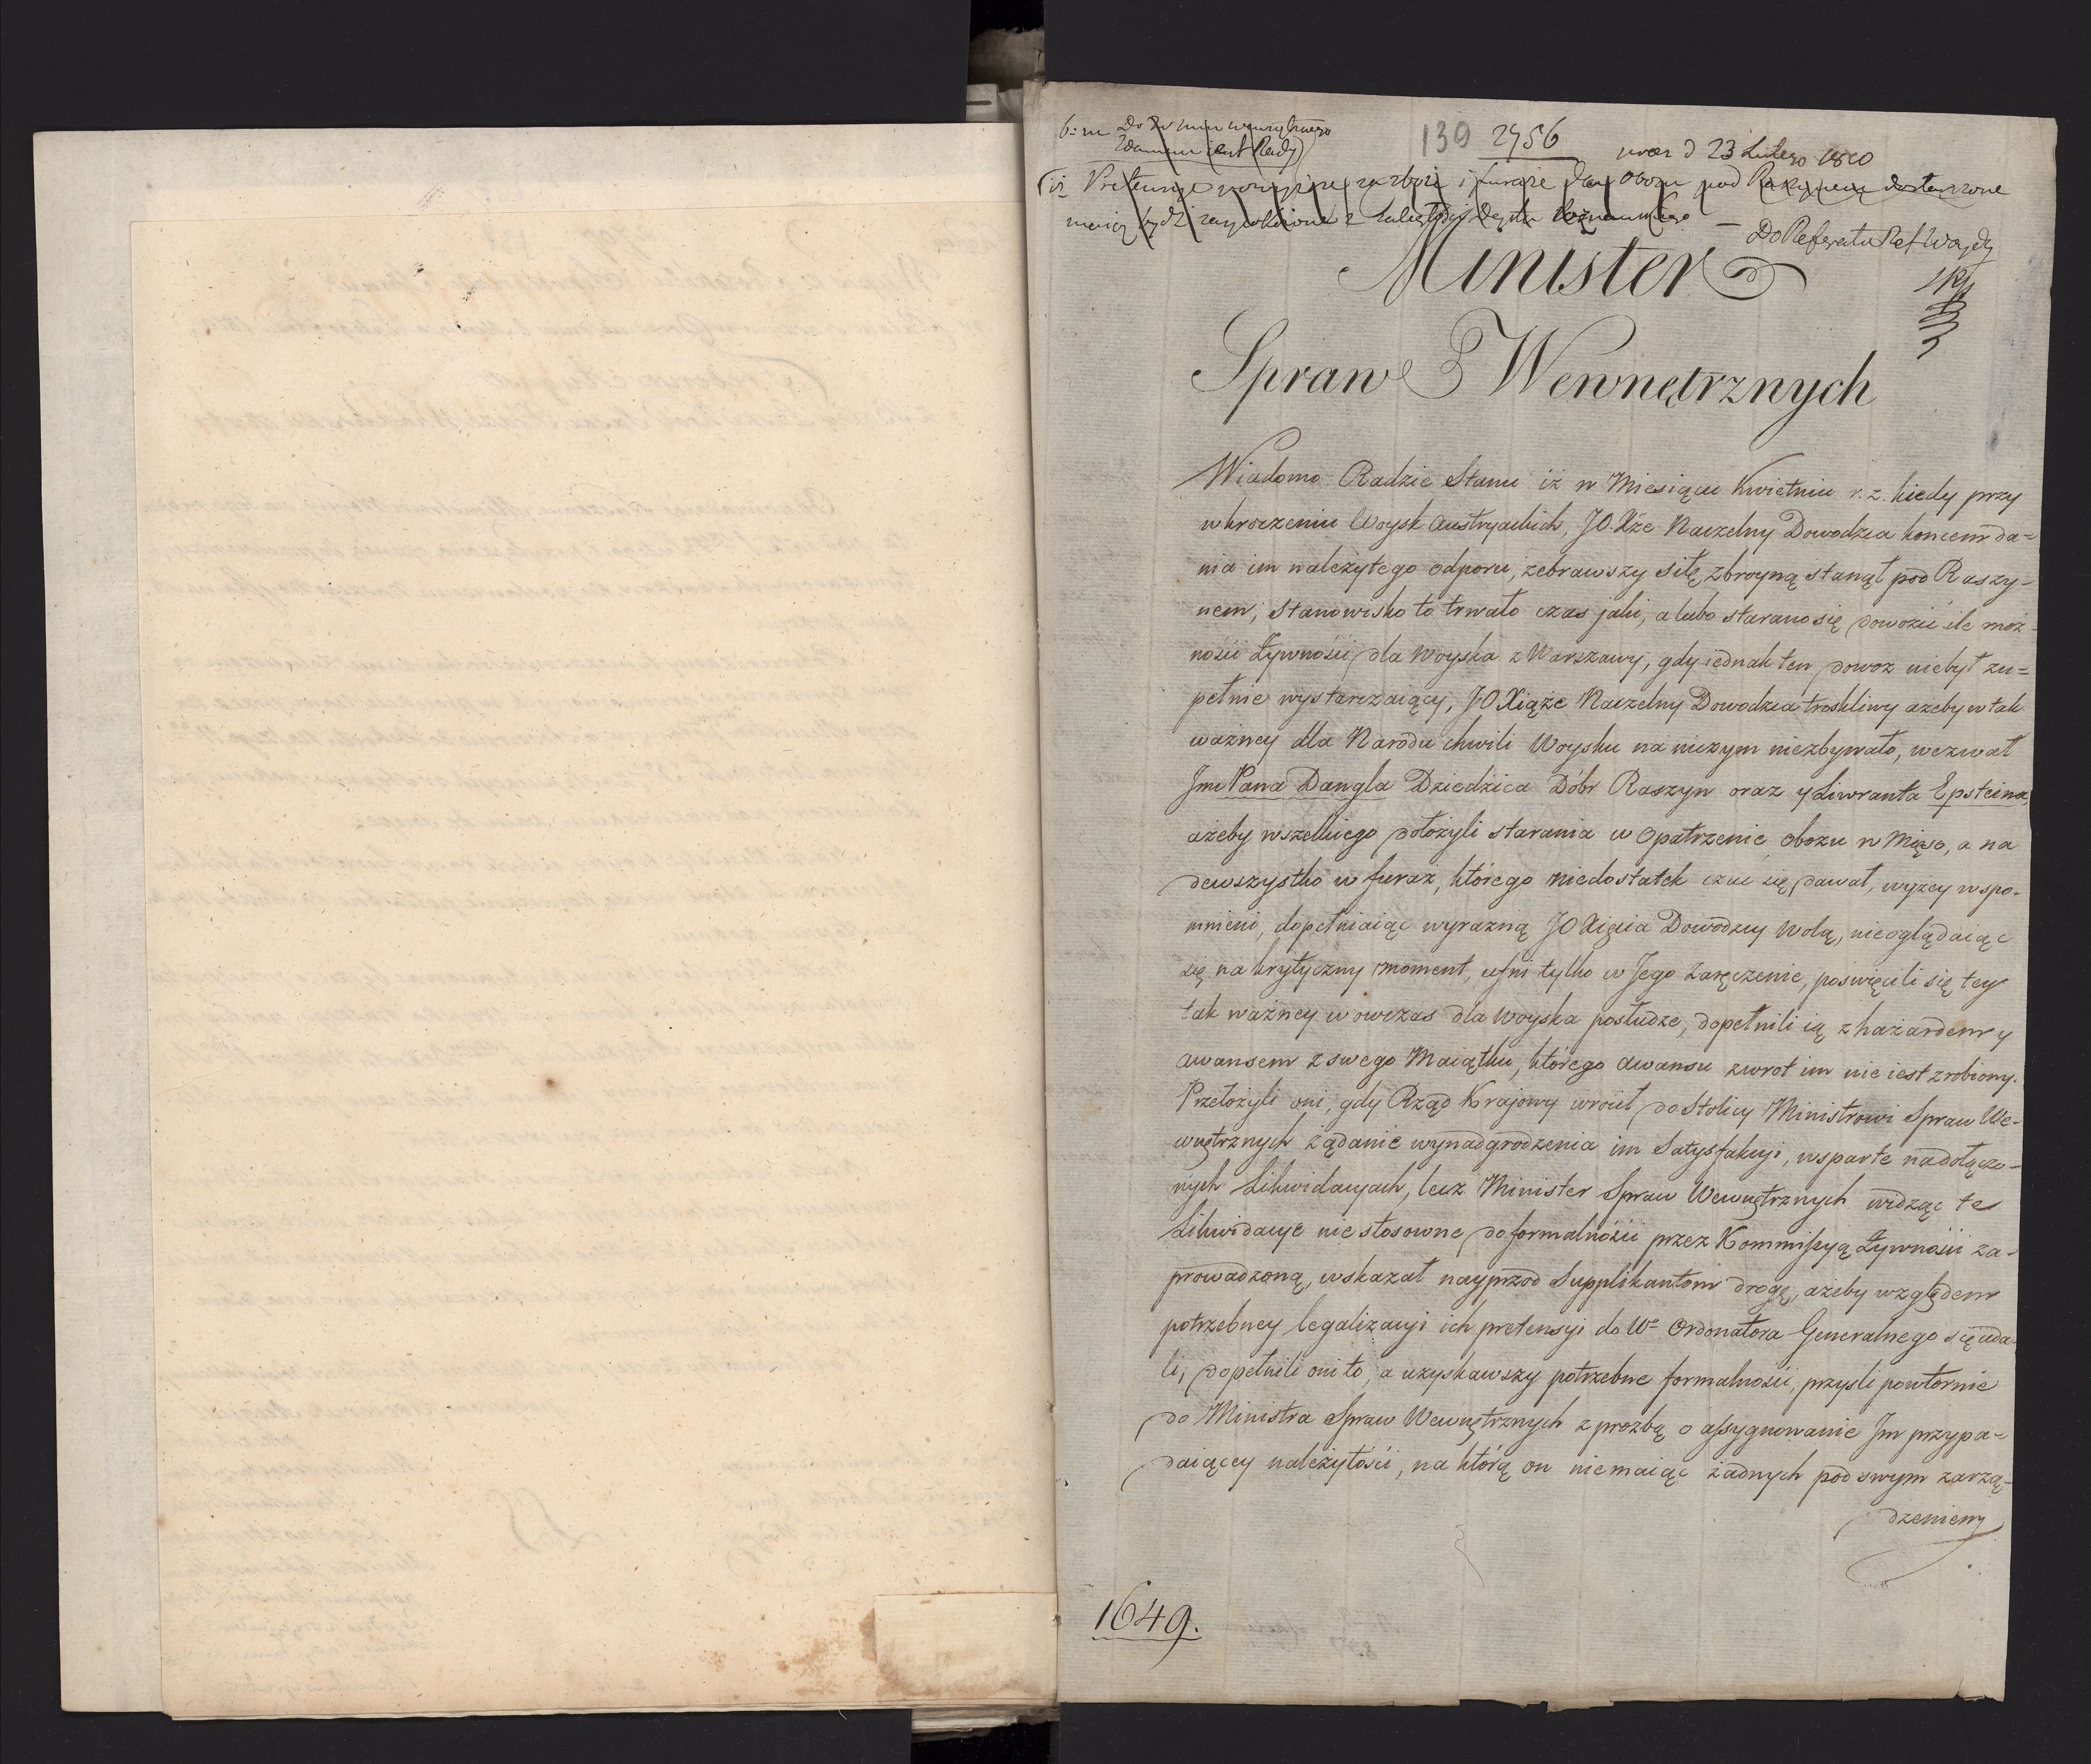 130 2756
23 Lutego 1810
pod dostarczone
Do Referatu Ref Woydy
Minister
Spraw Wewnętrznych
Wiadomo Radzie Stanu iż w Miesiącu Kwietniu r. z. kiedy przy
wkroczeniu Woysk Austryackich, JO. Xże Naczelny Dowodzca koncem da=
nia im należytego odporu, zebrawszy siłę zbroyną stanął pod Raszy-
nem, stanowisko to trwało czas jaki, a lubo starano się dowozić ile moż-
ności Żywności dla Woyska z Warszawy, gdy iednak ten dowoz niebył zu=
pełnie wystarczaiący, JO Xiąże Naczelny Dowodzca troskliwy ażeby w tak
ważney dla Narodu chwili Woysku na niczym niezbywało, wezwał
Jmć Pana Dangla Dziedzica Dóbr Raszyn oraz y Liwranta Epsteina,
ażeby wszelkiego dołożyli starania w Opatrzenie obozu w Mięso, a na
dewszystko w furaż, którego niedostatek czuć się dawał, wyżey wspo-
mnieni, dopełniaiąc wyrazną JO Xięcia Dowódzcy Wolą, nieoglądaiąc
się na krytyczny moment, ufni tylko w Jego Zaręczenie, poswięcili się tey
tak ważney wowczas dla Woyska posłudze, dopełnili ią z hazardem y
awansem z swego Maiątku, którego awansu zwrot im nie iest zrobiony.
Przełożyli oni, gdy Rząd Krajowy wrócił do Stolicy Ministrowi Spraw We-
wnętrznych żądanie wynadgrodzenia im Satysfakcyi, wsparte na dołączo-
nych Likwidacyach, lecz Minister Spraw Wewnętrznych widząc te
Likwidacye nie stosowne do formalności przez Kommissyą Żywności za-
prowadzoną, wskazał nayprzod Supplikantom drogę, ażeby względem
potrzebney legalizacyi ich pretensyi do Wo Ordonatora Generalnego się uda-
li, dopełnili oni to, a uzyskawszy potrzebne formalności, przyśli powtórnie
do Ministra Spraw Wewnętrznych z prozbą o assygnowanie Im przypa-
daiącey należytości, na którą on niemaiąc żadnych pod swym zarzą-
dzeniem
1649.